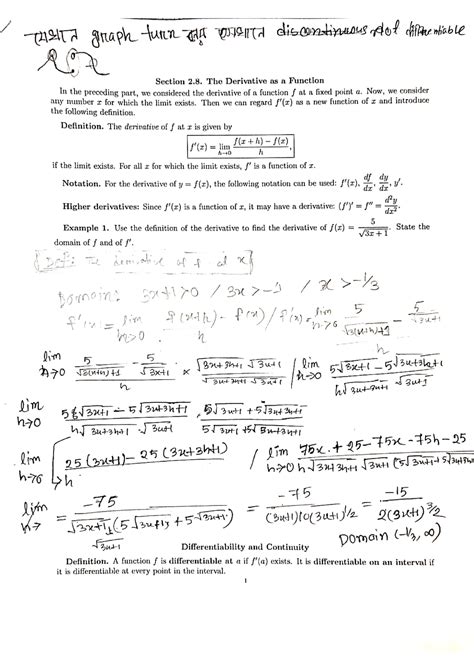 যেখানে graph turn করে সেখানে discontinuous not differentiable
Section 2.8. The Derivative as a Function
In the preceding part, we considered the derivative of a function f at a fixed point a. Now, we consider
any number x for which the limit exists. Then we can regard f′(x) as a new function of x and introduce
the following definition.
Definition. The derivative of f at x is given by
f′(x) = lim_{h→0} (f(x + h) − f(x))/h,
if the limit exists. For all x for which the limit exists, f′ is a function of x.
Notation. For the derivative of y = f(x), the following notation can be used: f′(x), df/dx, dy/dx, y′.
Higher derivatives: Since f′(x) is a function of x, it may have a derivative: (f′)′ = f″ = d²y/dx².
Example 1. Use the definition of the derivative to find the derivative of f(x) = 5/√(3x + 1). State the
domain of f and of f′.
The derivative of f at x
Domain: 3x+1>0 / 3x>-1 / x>-1/3
f'(x) = lim_{h→0} (f(x+h) - f(x))/h / f'(x) = lim_{h→0} (5/√(3(x+h)+1) - 5/√(3x+1))/h
lim_{h→0} (5/√(3(x+h)+1) - 5/√(3x+1))/h × (√(3x+3h+1) √(3x+1))/(√(3x+3h+1) √(3x+1)) / lim_{h→0} (5√(3x+1) - 5√(3x+3h+1))/(h√(3x+3h+1) √(3x+1))
lim_{h→0} (5√(3x+1) - 5√(3x+3h+1))/(h√(3x+3h+1) √(3x+1)) · (5√(3x+1) + 5√(3x+3h+1))/(5√(3x+1) + 5√(3x+3h+1))
lim_{h→0} 25(3x+1) - 25(3x+3h+1) / lim_{h→0} (75x + 25 - 75x - 75h - 25)/(h√(3x+3h+1) √(3x+1) (5√(3x+1) + 5√(3x+3h+1)))
lim_{h→} -75/(√(3x+1) √(3x+1) (5√(3x+1) + 5√(3x+1))) = -75/((3x+1)10(3x+1)^1/2) = -15/(2(3x+1)^3/2)
Domain (-1/3, ∞)
Differentiability and Continuity
Definition. A function f is differentiable at a if f′(a) exists. It is differentiable on an interval if
it is differentiable at every point in the interval.
1